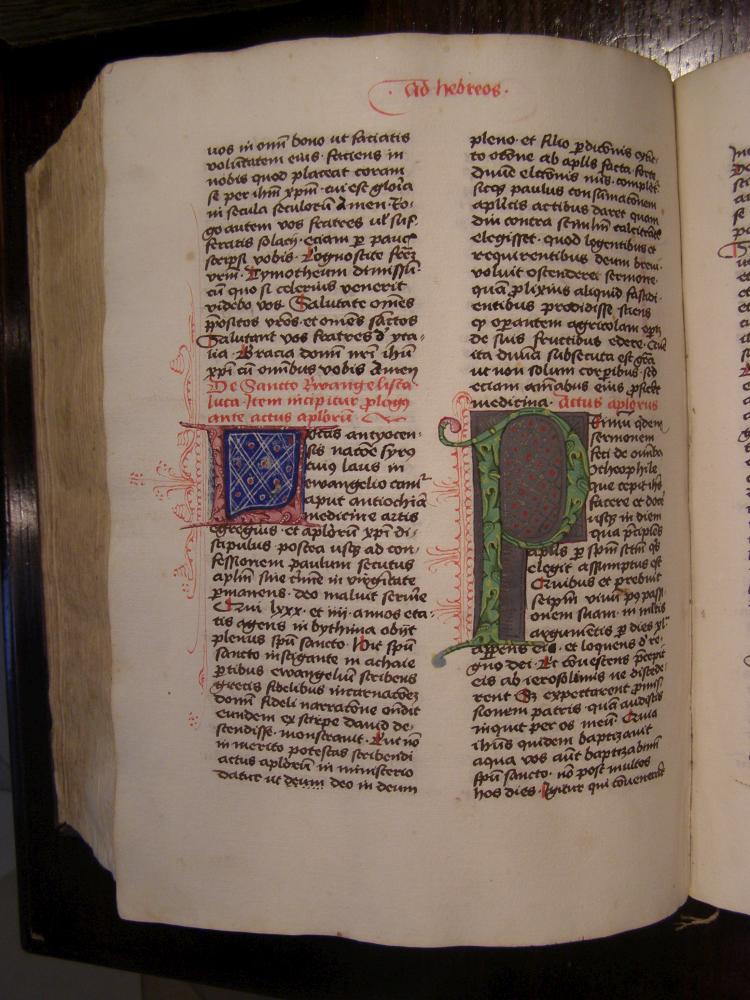 Ad hebreos.
uos in omī bono ut faciatis
voluntatem eius. faciens in
nobis quod placeat coram
se per ihm̄ xpm̄. cui est gloīa
in secula seculorū Amen. Ro-
go autem vos fratres ut suf-
feratis solacij. eciam ꝑ pauc̄
scripsi vobis. Cognoscite frēz
vrm̄. Tymotheum dimissū.
cū quo si celerius venerit
videbo vos. Salutate om̄es
p̄positos vrōs. et om̄es sāctos
Salutant vos fratres d' yta-
lia. Gracia domī nr̄i ihū
xpi cū omībus vobis Amen
De Sancto Ewangelista
luca. Item incipitur ꝓlogꝰ
ante actus aplōrū
ucas antyocen-
sis natōe syrꝰ
cuiꝰ laus in
ewangelio canit᷑
aput antiochiā
medicine artis
egregius. et aplōrū xpī di-
scipulus. postea usqꝫ ad con-
fessionem paulum secutus
aplm̄ sine cīme in virgītate
ꝑmanens. deo maluit seruīe
Qui lxxx. et iiii annos eta-
tis agens in bythinia obijt
plenus spū sancto. Hoc spū
sancto instigante in achaie
ꝑtibus ewangeliū scribens
grecis fidelibus incarnatōeꝫ
domī fideli narratōne oñdit
eundem ex stirpe dauid de-
scendisse. monstrauit. Cui nō
in merito potestas scribendi
actus aplōrū in ministerio
datur ut deum deo in deum
pleno. et filio ꝑdicōnis extīc-
to orōne ab aplīs facta sorte
dnīce elcōnis nūs. compleꝫ
sicqꝫ paulus consumacōnem
aplīcis actibus daret quem
diu contra stimulū calcitrātē
elegisset. quod legentibus et
requirentibus deum breui
volui ostendere sermone.
quā ꝓlixius aliquid fastidi-
entibus prodidisse sciens
ꝙ operantem agricolam opꝫ
de suis fructibus edere. Quē
ita diuīa subsecuta est grā
ut non solum corꝑibus. sed
eciam aīabus eius ꝓficēt
medicina. Actus aplōrus
Primū qdem
sermonem
feci de omībꝫ
o theophile
que cepit ihs
facere et docē
usqꝫ in diem
qua p̄cipiēs
aplīs ꝑ spm̄ sctm̄ qs
elegit assumptus est
Quibus et prebuit
seipm̄ viuū pꝰ pass-
onem suam. in mltis
argumētis ꝑ dies xl
appens eis. et loquens d' re-
gno dei. Et cōuescens p̄cepit
eis ab ierosolimis ne discede-
rent Sꝫ expectarent ꝓmis-
sionem patris. quā audistis
inquit per os meū Quia
ihūs quidem baptizauit
aqua. vos aūt baptizabimī
spū sancto. nō post multos
hos dies. Igitur qui cōuenerāt